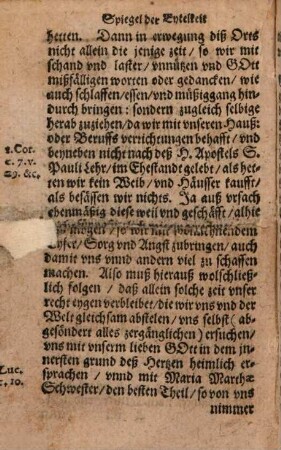 Spiegel der Eytelkeit
hetten. Dann in erwegung diß Orts
nicht allein die jenige zeit / so wir mit
schand vnd laster / vnnützen vnd GOtt
mißfälligen worten oder gedancken / wie
auch schlaffen / essen / vnd müßiggang hin-
durch bringen : sondern zugleich selbige
herab zuziehen / da wir mit vnseren Hauß-
oder Beruffs verrichtungen behafft / vnd
beyneben nicht nach deß H. Apostels S.
Pauli Lehr / im Ehestandt gelebt / als het-
ten wir kein Weib / vnd Häusser kaufft /
als besässen wir nichts. Ja auß vrsach
ebenmäßig diese weil vnd geschäfft / alhie
so wir mit
Eyfer / Sorg vnd Angst zubringen / auch
damit vns vnnd andern viel zu schaffen
machen. Also muß hierauß wolschließ-
lich folgen / daß allein solche zeit vnser
recht eygen verbleibet / die wir vns vnd der
Welt gleichsam abstelen / vns selbst ( ab-
gesöndert alles zergänglichen ) ersuchen /
vns mit vnserm lieben GOtt in dem in-
nersten grund deß Hertzen heimlich er-
sprachen / vnnd mit Maria Marthæ
Schwester / den besten Theil / so von vns
nimmer
1. Cor.
c. 7. v.
29. &c.
Luc.
c. 10.